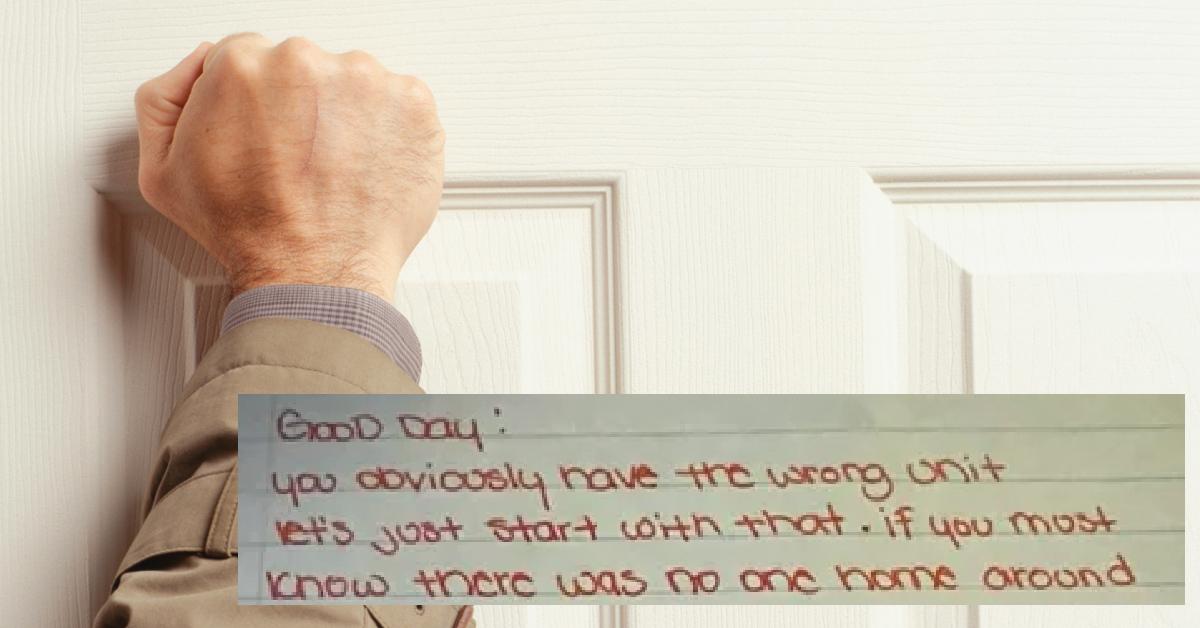 Good Day:
you obviously have the wrong unit
let's just start with that. if you must
know there was no one home around